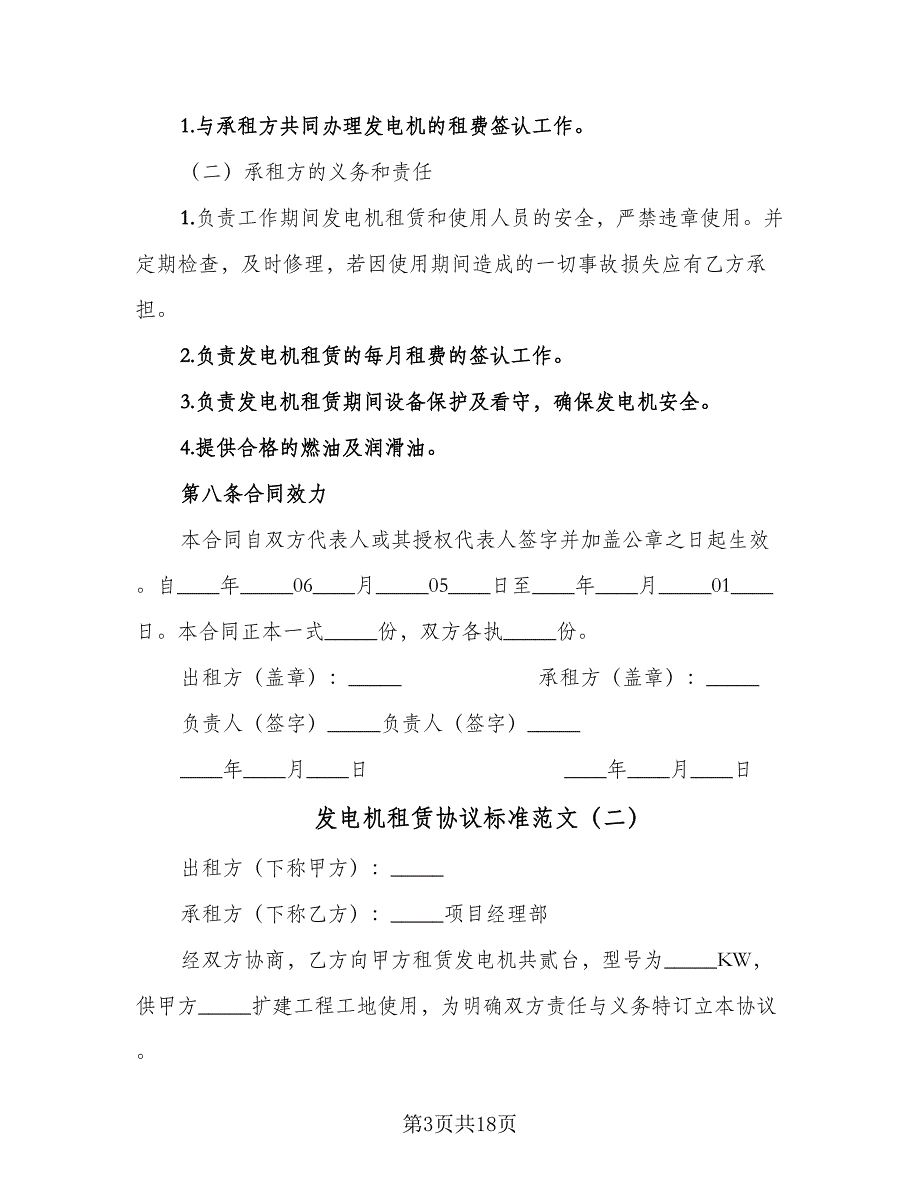 1.与承租方共同办理发电机的租费签认工作。
（二）承租方的义务和责任
1.负责工作期间发电机租赁和使用人员的安全，严禁违章使用。并
定期检查，及时修理，若因使用期间造成的一切事故损失应有乙方承
担。
2.负责发电机租赁的每月租费的签认工作。
3.负责发电机租赁期间设备保护及看守，确保发电机安全。
4.提供合格的燃油及润滑油。
第八条合同效力
本合同自双方代表人或其授权代表人签字并加盖公章之日起生效
。自____年_____06____月_____05____日至____年____月_____01____
日。本合同正本一式_____份，双方各执_____份。
出租方（盖章）：_____ 承租方（盖章）：_____
负责人（签字）_____负责人（签字）_____
____年____月____日 ____年____月____日
发电机租赁协议标准范文（二）
出租方（下称甲方）：_____
承租方（下称乙方）：_____项目经理部
经双方协商，乙方向甲方租赁发电机共贰台，型号为_____KW，
供甲方_____扩建工程工地使用，为明确双方责任与义务特订立本协议
。
第3页共18页